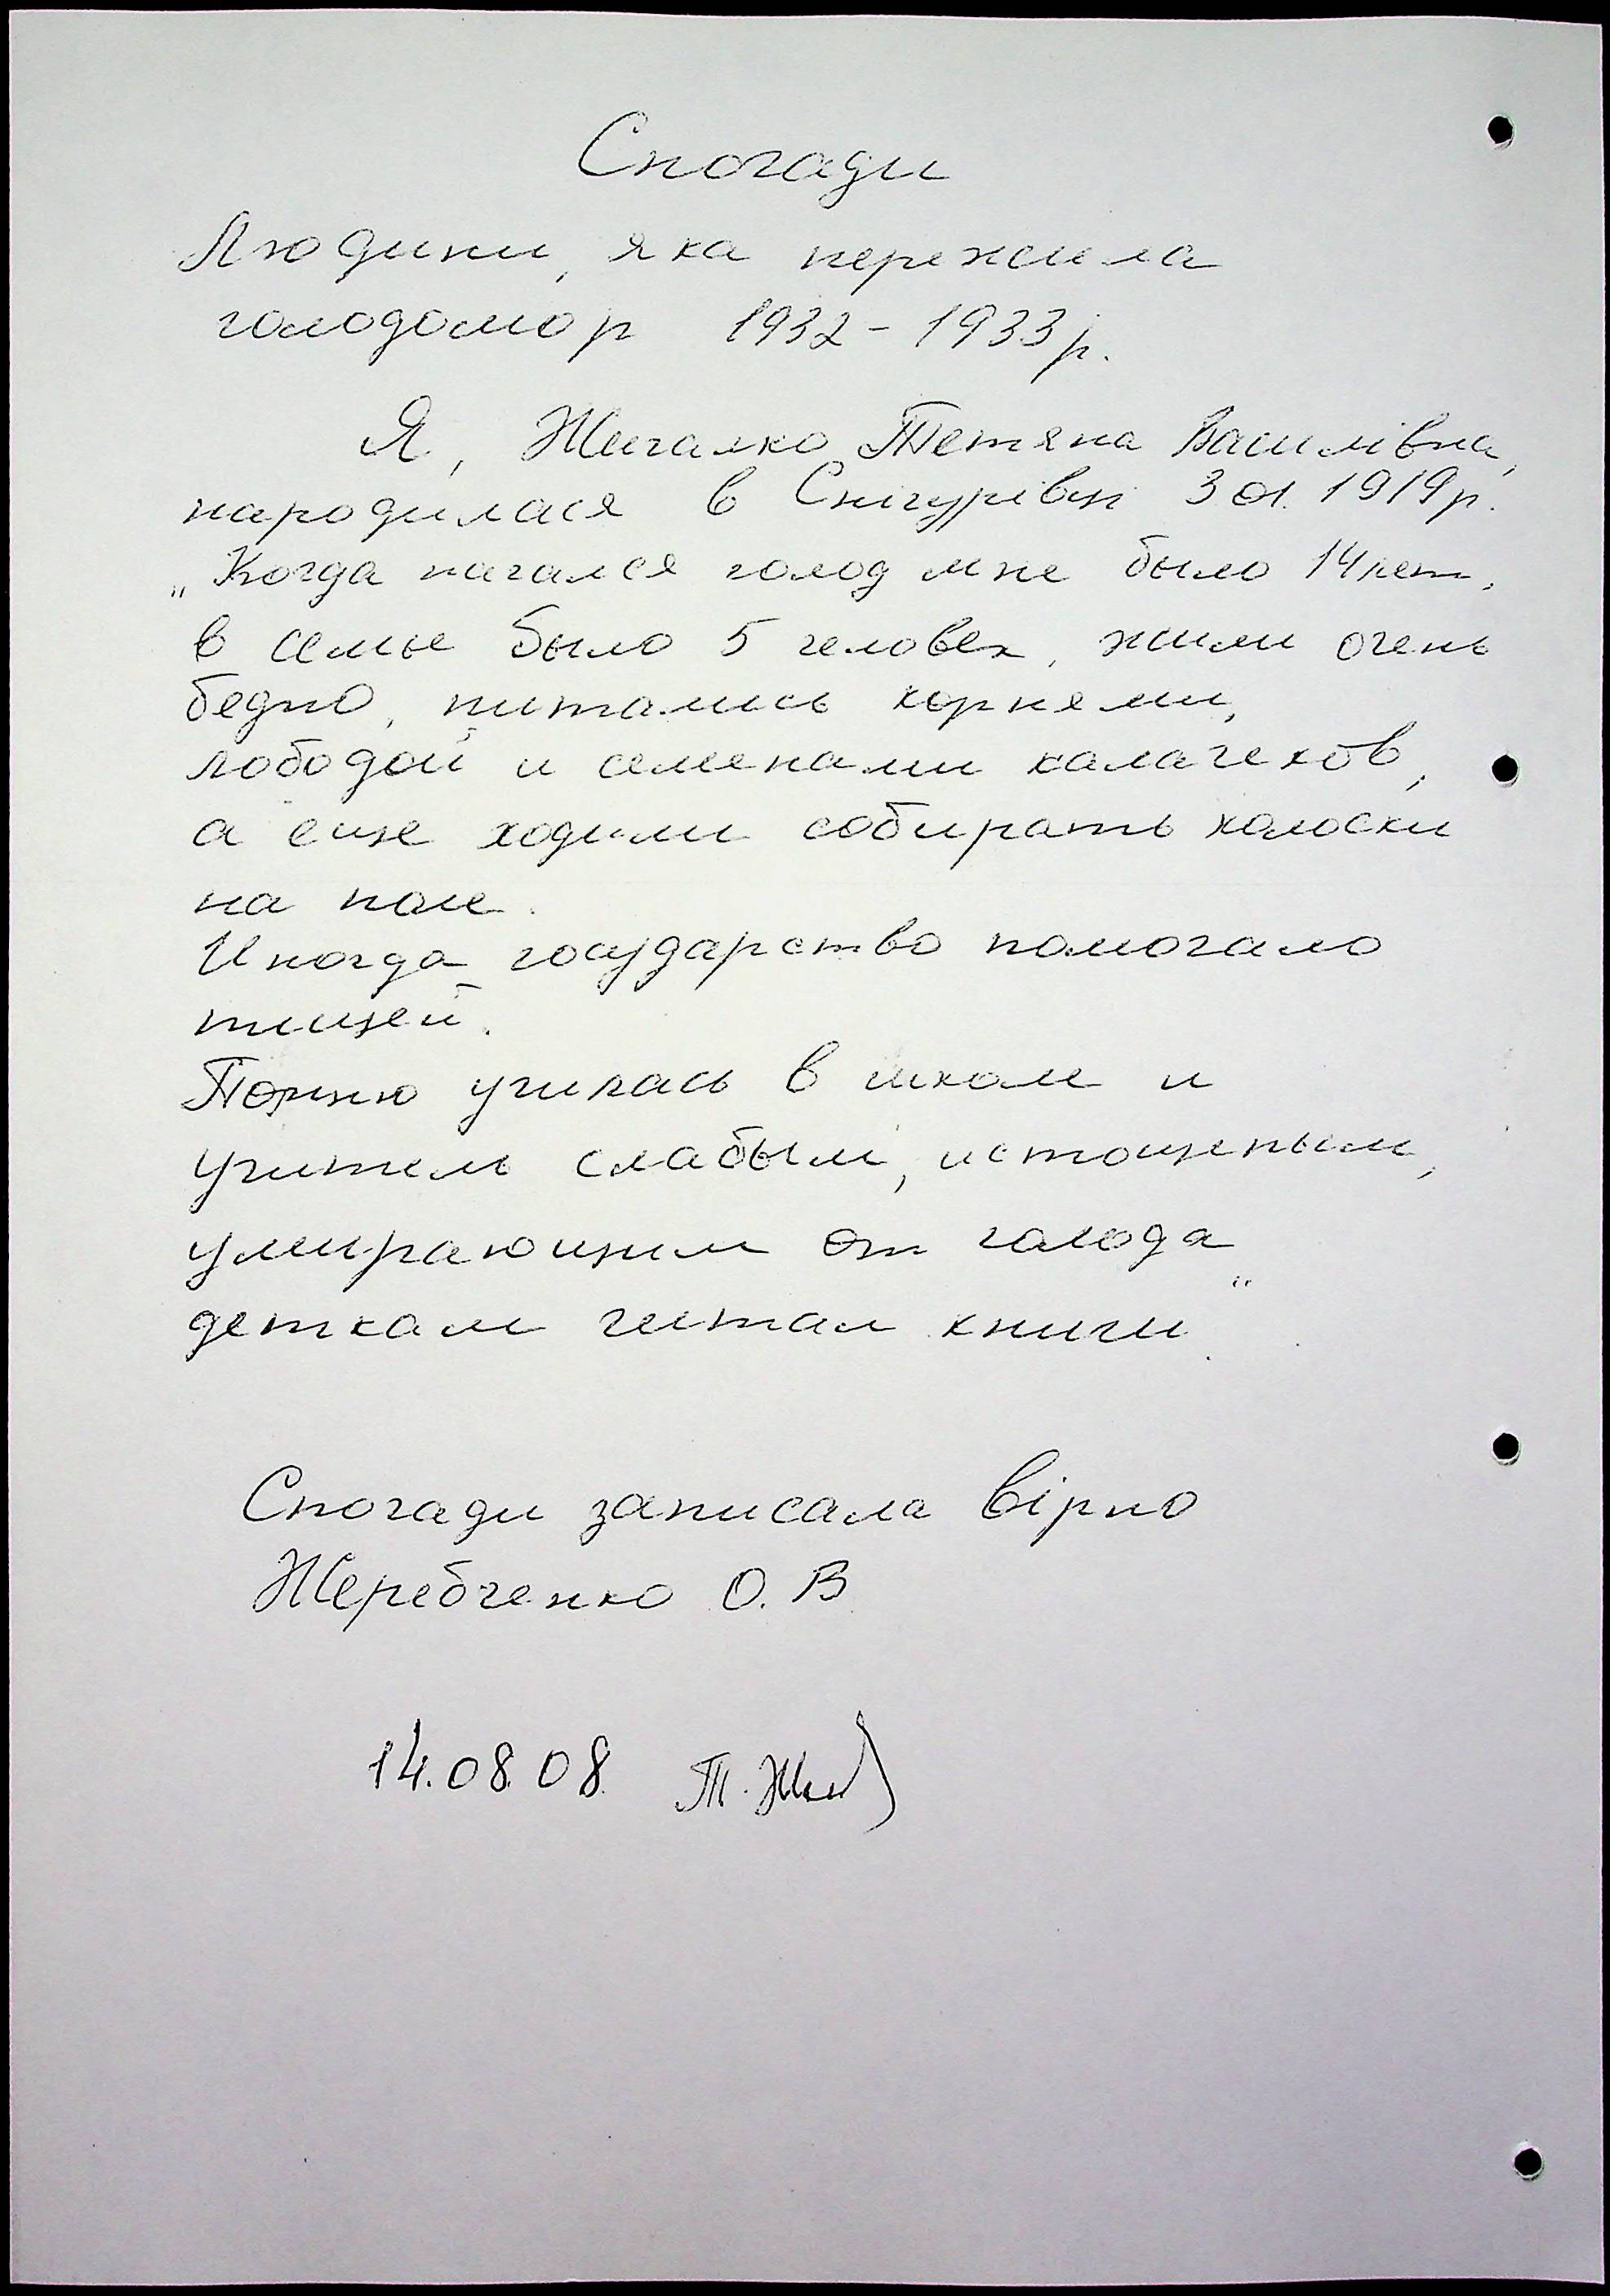 Спогади
Людини, яка пережила
голодомор 1932-1933р.
Я, Жигалко Тетяна Василівна,
народилася в Снігурівці 3 01. 1919р.
„Когда начался голод мне было 14 лет,
в семье было 5 человек, жили очень
бедно, питались корнями,
лободой и семенами калачеков,
а еще ходили собирать колоски
на поле.
Иногда государство помогало
пищей.
Помню училась в школе и
учитель слабым, истощеным,
умирающим от голода
деткам читал книги."
Спогади записала вірно
Жеребченко О. В
14.08.08 Т. Жи